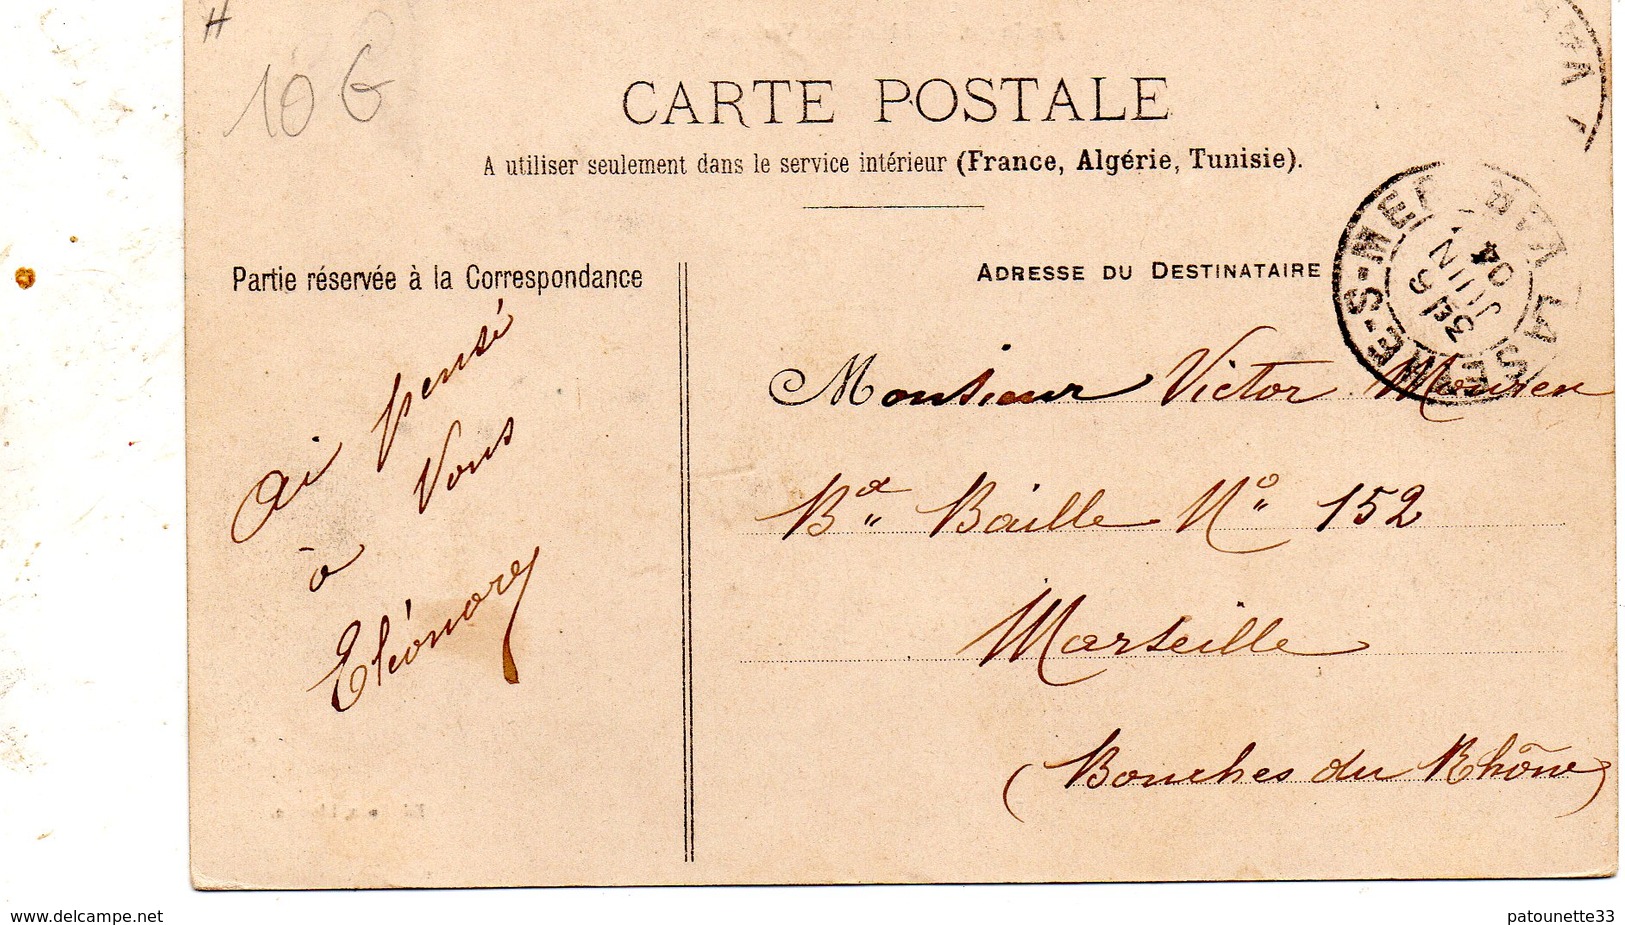 10 G
CARTE POSTALE
A utiliser seulement dans le service intérieur (France, Algérie, Tunisie).
Partie réservée à la Correspondance
ADRESSE DU DESTINATAIRE
LA SEYNE-S-MER VAR
3E
6
JUIN
04
Ai pensé
à Vous
Eléonore
Monsieur Victor
Bd Baille No 152
Marseille
(Bouches du Rhône)
www.delcampe.net
patounette33